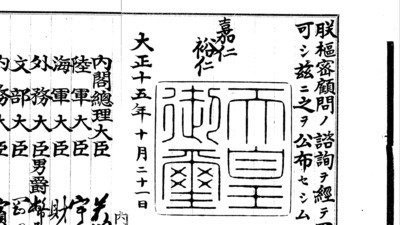 朕樞密顧問ノ諮詢ヲ經テ
可シ茲ニ之ヲ公布セシム
嘉仁
裕仁
天皇御璽
大正十五年十月二十一日
内閣總理大臣
陸軍大臣
海軍大臣 財
外務大臣男爵幣
文部大臣
内務大臣